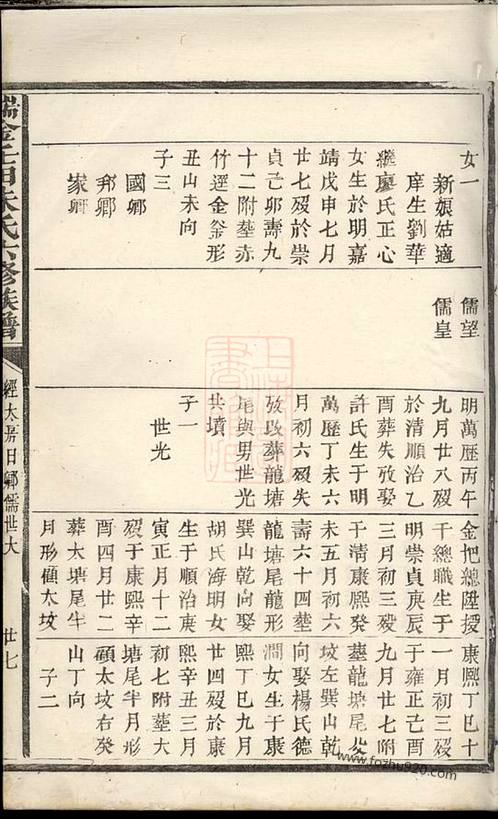 女一
新娘姑適
庠生劉華
繼廖氏正心
女生於明嘉
靖戊申七月
廿七歿於崇
貞己卯壽九
十二附塟赤
竹逕金釡形
丑山未向
子三
國卿
邦卿
家卿
儒望
儒皇
明萬歷丙午
九月廿八歿
於清順治乙
酉葬失攷娶
許氏生于明
萬歷丁未六
月初六歿失
攷攺葬龍塘
尾與男世光
共墳
子一
世光
金把總陞授
千總職生于
明崇貞庚辰
三月初三歿
于清康熙癸
未五月初六
壽六十四塟
龍塘尾龍形
巽山乾向娶
胡氏海明女
生于順治庚
寅正月十二
歿于康熙辛
酉四月廿二
葬大塘尾半
月形傾太坟
康熙丁巳十
一月初三歿
于雍正己酉
九月廿七附
塟龍塘尾父
坟左巽山乾
向娶楊氏德
澗女生于康
熙丁巳九月
廿四歿於康
熙辛丑三月
初七附塟大
塘尾半月形
碩太坟右癸
山丁向
子二
瑞金上田朱氏六修族譜
經太房日鄉儒世大
廿七
www.fozhu920.com